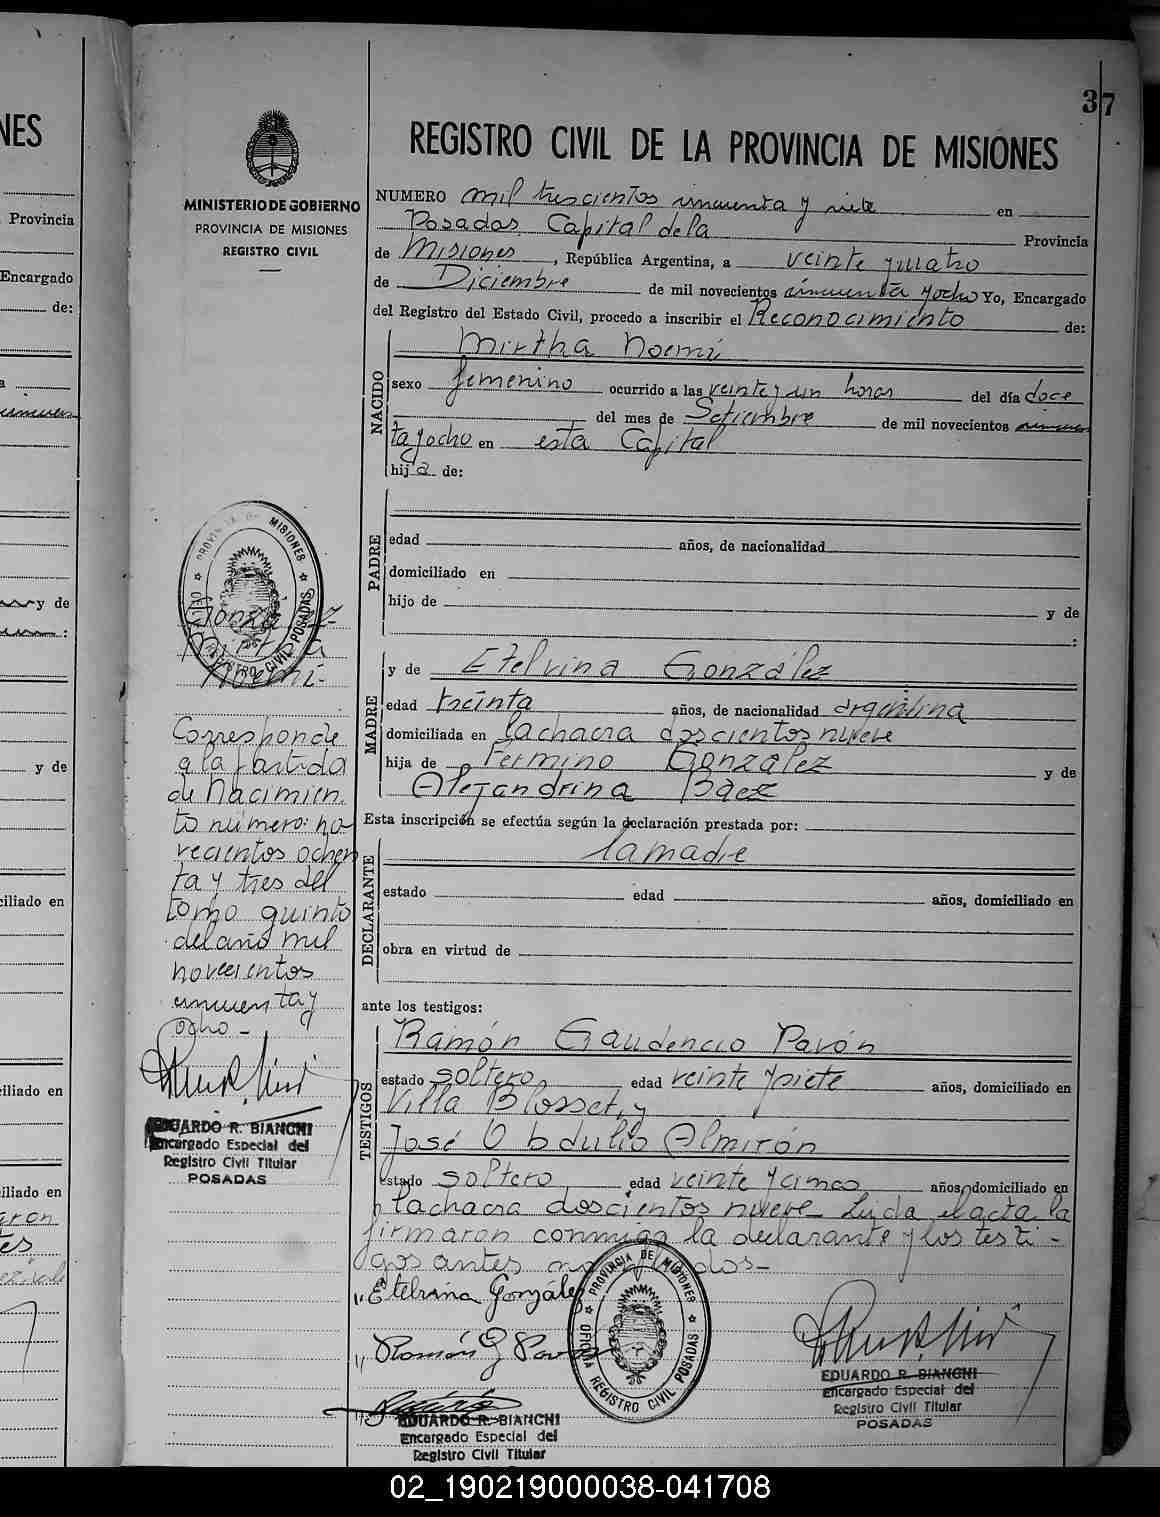 37
REGISTRO CIVIL DE LA PROVINCIA DE MISIONES
MINISTERIO DE GOBIERNO
PROVINCIA DE MISIONES
REGISTRO CIVIL
NUMERO mil trescientos cincuenta y siete en
Posadas Capital de la Provincia
de Misiones, República Argentina, a veinte y cuatro
de Diciembre de mil novecientos cincuenta y ocho Yo, Encargado
del Registro del Estado Civil, procedo a inscribir el Reconocimiento de:
NACIDO
Mirtha Noemí
sexo femenino ocurrido a las veinte y un horas del día doce
del mes de Setiembre de mil novecientos cincuen
ta y ocho en esta Capital
hija de:
PADRE
edad años, de nacionalidad
domiciliado en
hijo de y de
:
MADRE
y de Etelvina González
edad treinta años, de nacionalidad argentina
domiciliada en la chacra doscientos nueve
hija de Fermino González y de
Alejandrina Báez
Esta inscripción se efectúa según la declaración prestada por:
DECLARANTE
la madre
estado edad años, domiciliado en
obra en virtud de
ante los testigos:
TESTIGOS
Ramón Gaudencio Pavón
estado soltero edad veinte y siete años, domiciliado en
Villa Blosset, y
José Obdulio Almirón
estado soltero edad veinte y cinco años, domiciliado en
la chacra doscientos nueve Leída el acta la
firmaron conmigo la declarante y los testi-
gos antes
Etelvina González
Ramón G Pavón
EDUARDO R. BIANCHI
Encargado Especial del
Registro Civil Titular
EDUARDO R. BIANCHI
Encargado Especial del
Registro Civil Titular
POSADAS
PROVINCIA DE MISIONES
OFICINA REGISTRO CIVIL POSADAS
PROVINCIA DE MISIONES
REGISTRO CIVIL POSADAS
González
Mirtha
Noemí-
Corresponde
a la partida
de Nacimien
to número: no-
vecientos ochen
ta y tres del
tomo quinto
del año mil
novecientos
cincuenta y
ocho-
EDUARDO R. BIANCHI
Encargado Especial del
Registro Civil Titular
POSADAS
NES
Provincia
Encargado
de:
y de
:
y de
ciliado en
ciliado en
iliado en
02_190219000038-041708